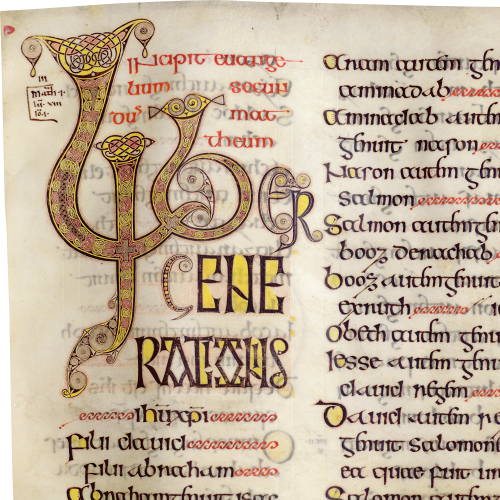 Incipit euange
lium secun
dus mat
theum
Liber
GENE
RATIONIS
ihu xpi
filii dauid
filii abracham
Abracham genuit isac
Aram autem gen
aminadab
Aminadab autem
genuit nason
Nason autem gen
salmon
Salmon autem gen
booz de rachab
Booz autem genuit
ex ruth
Obeth autem genui
Iesse autem genuit
dauid regem
Dauid autem re
genuit salomon
ea quae fuit
Salomon autem